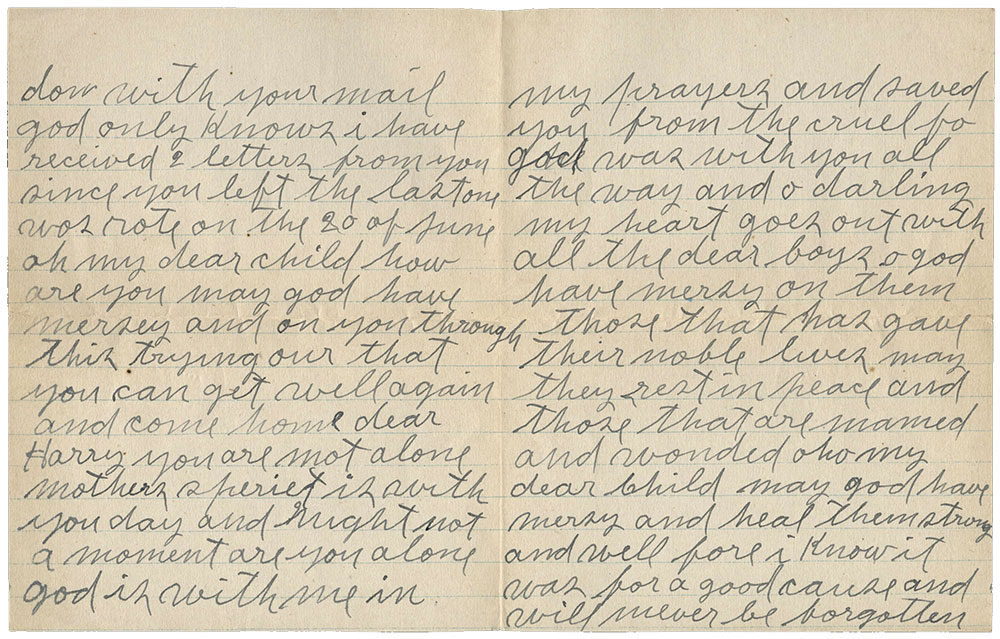 dow with your mail
god only Knows i have
received 2 letters from you
since you left the last one
was rote on the 20 of June
oh my dear child how
are you may god have
mersey and on you through
this trying our that
you can get well again
and come home dear
Harry you are not alone
mothers speriet is with
you day and night not
a moment are you alone
god is with me in
my prayers and saved
you from the cruel fo
god was with you all
the way and o darling
my heart goes out with
all the dear boys o god
have mersy on them
those that has gave
their noble lives may
they rest in peace and
those that are mamed
and wonded oho my
dear child may god have
mersy and heal them strong
and well fore i Know it
was for a good cause and
will never be forgotten